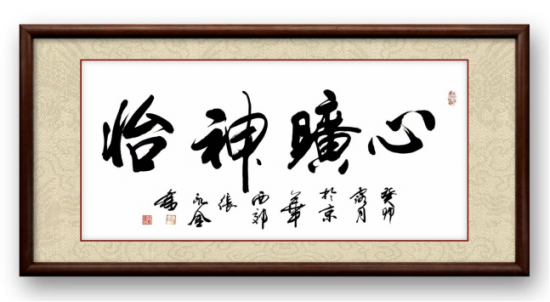 心曠神怡
癸卯
月
於京
華
西郊
張
永金
書